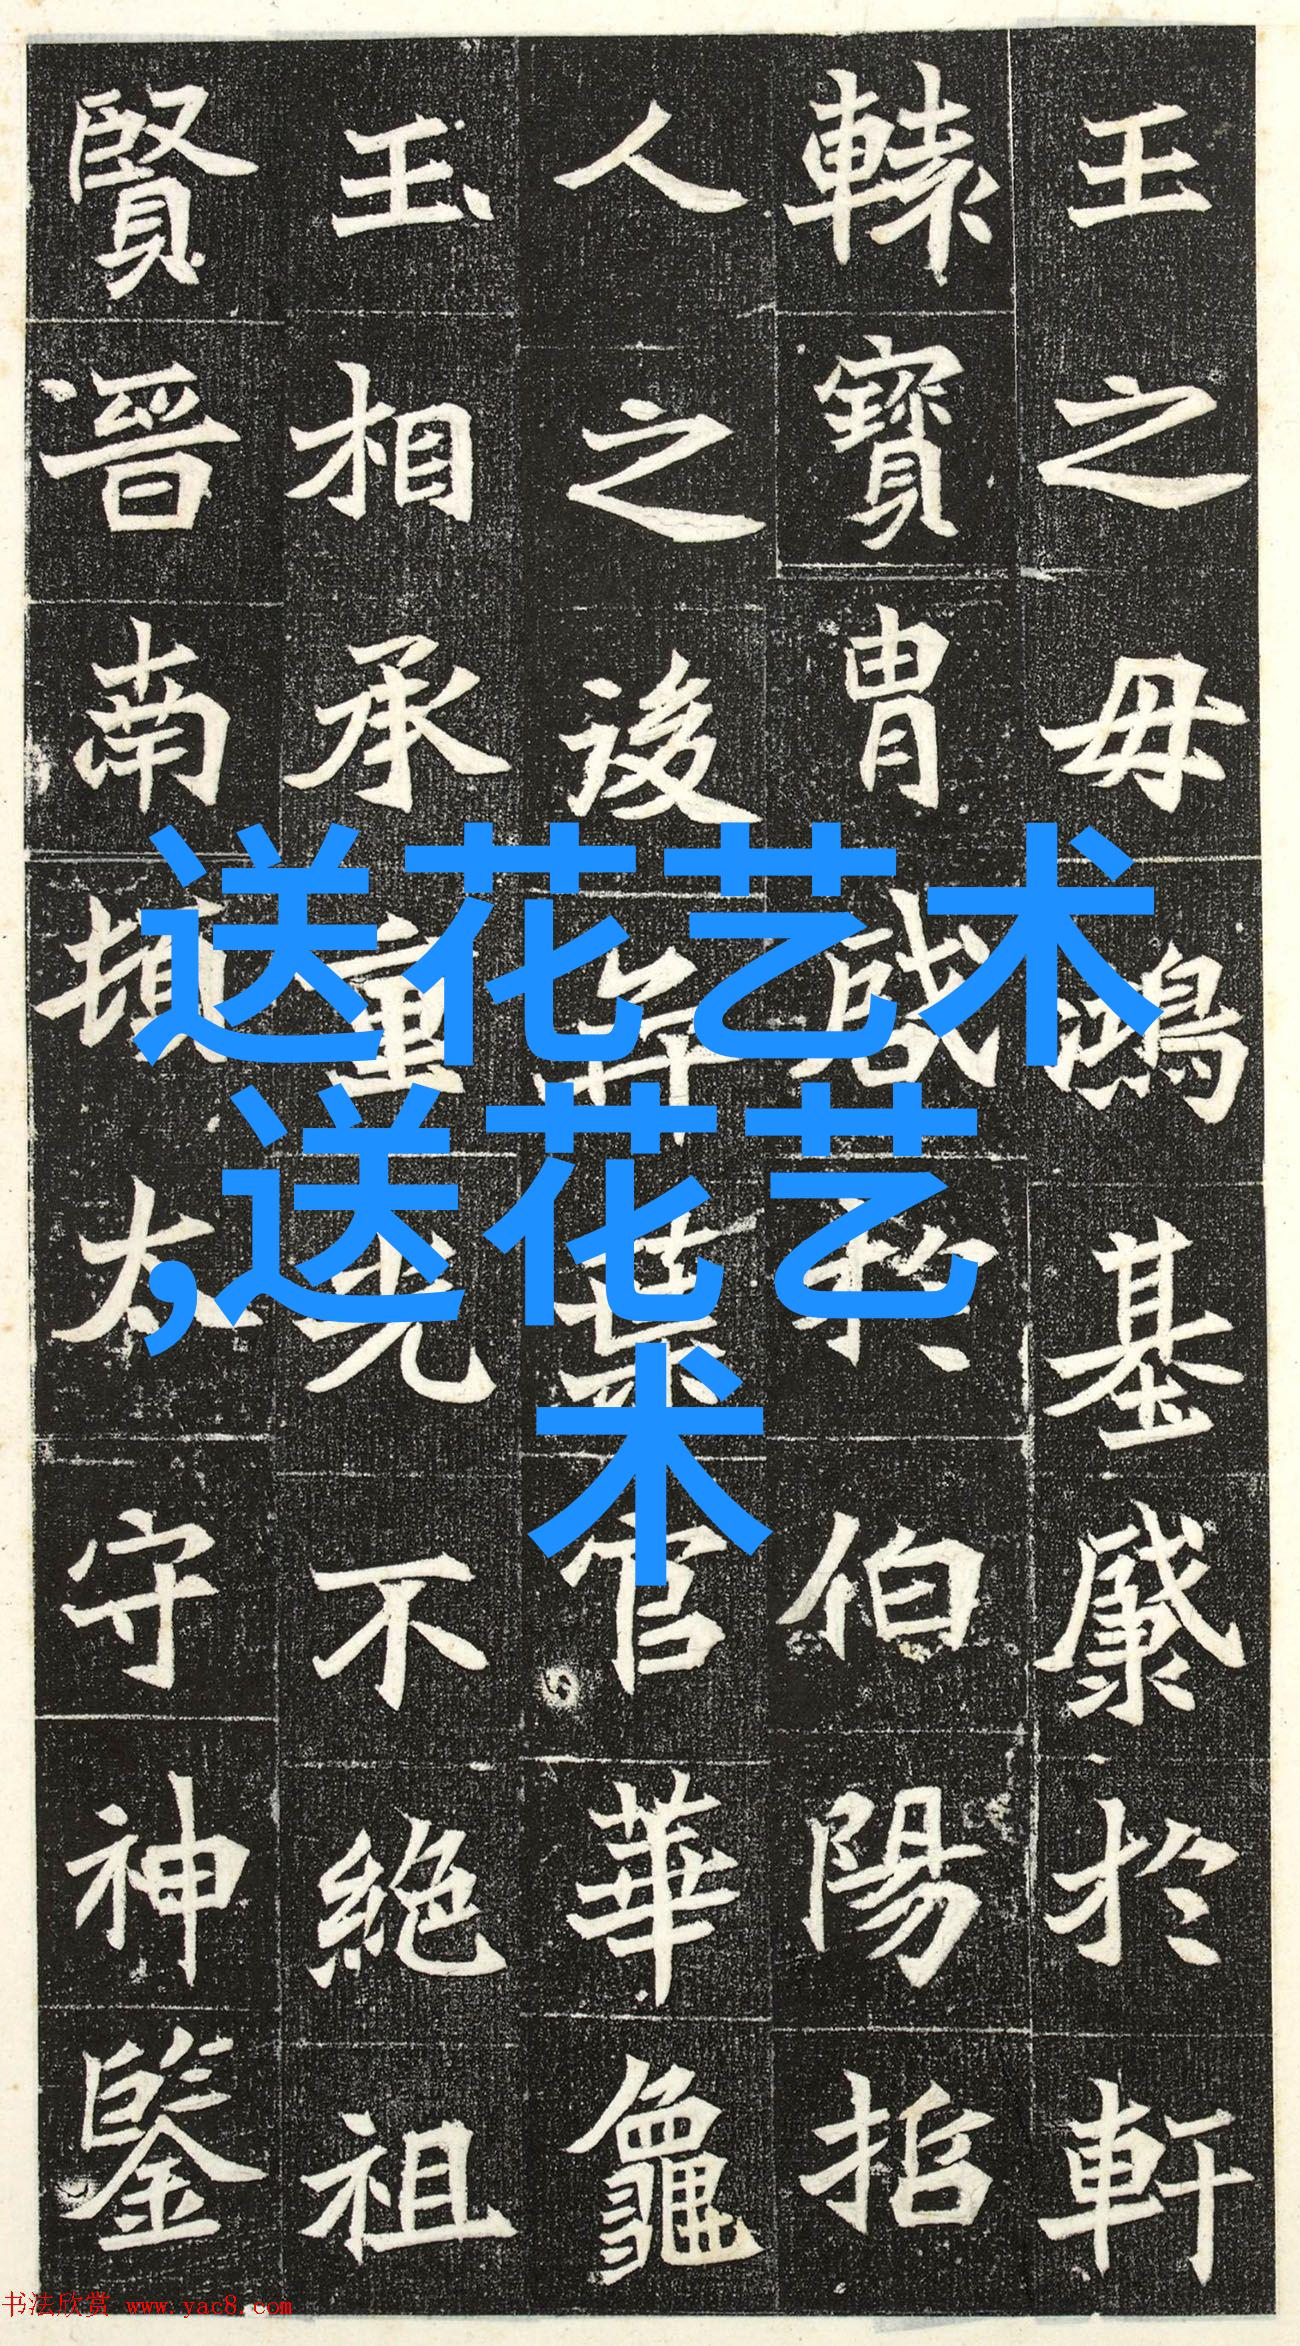 王之毋鴻基於軒
轅寶胄於伯陽
人之後葉官華龜
玉相承重光不絕祖
賢晉南頓太守神鑒
送花艺术
,送花艺
术
书法欣赏 www.yac8.com